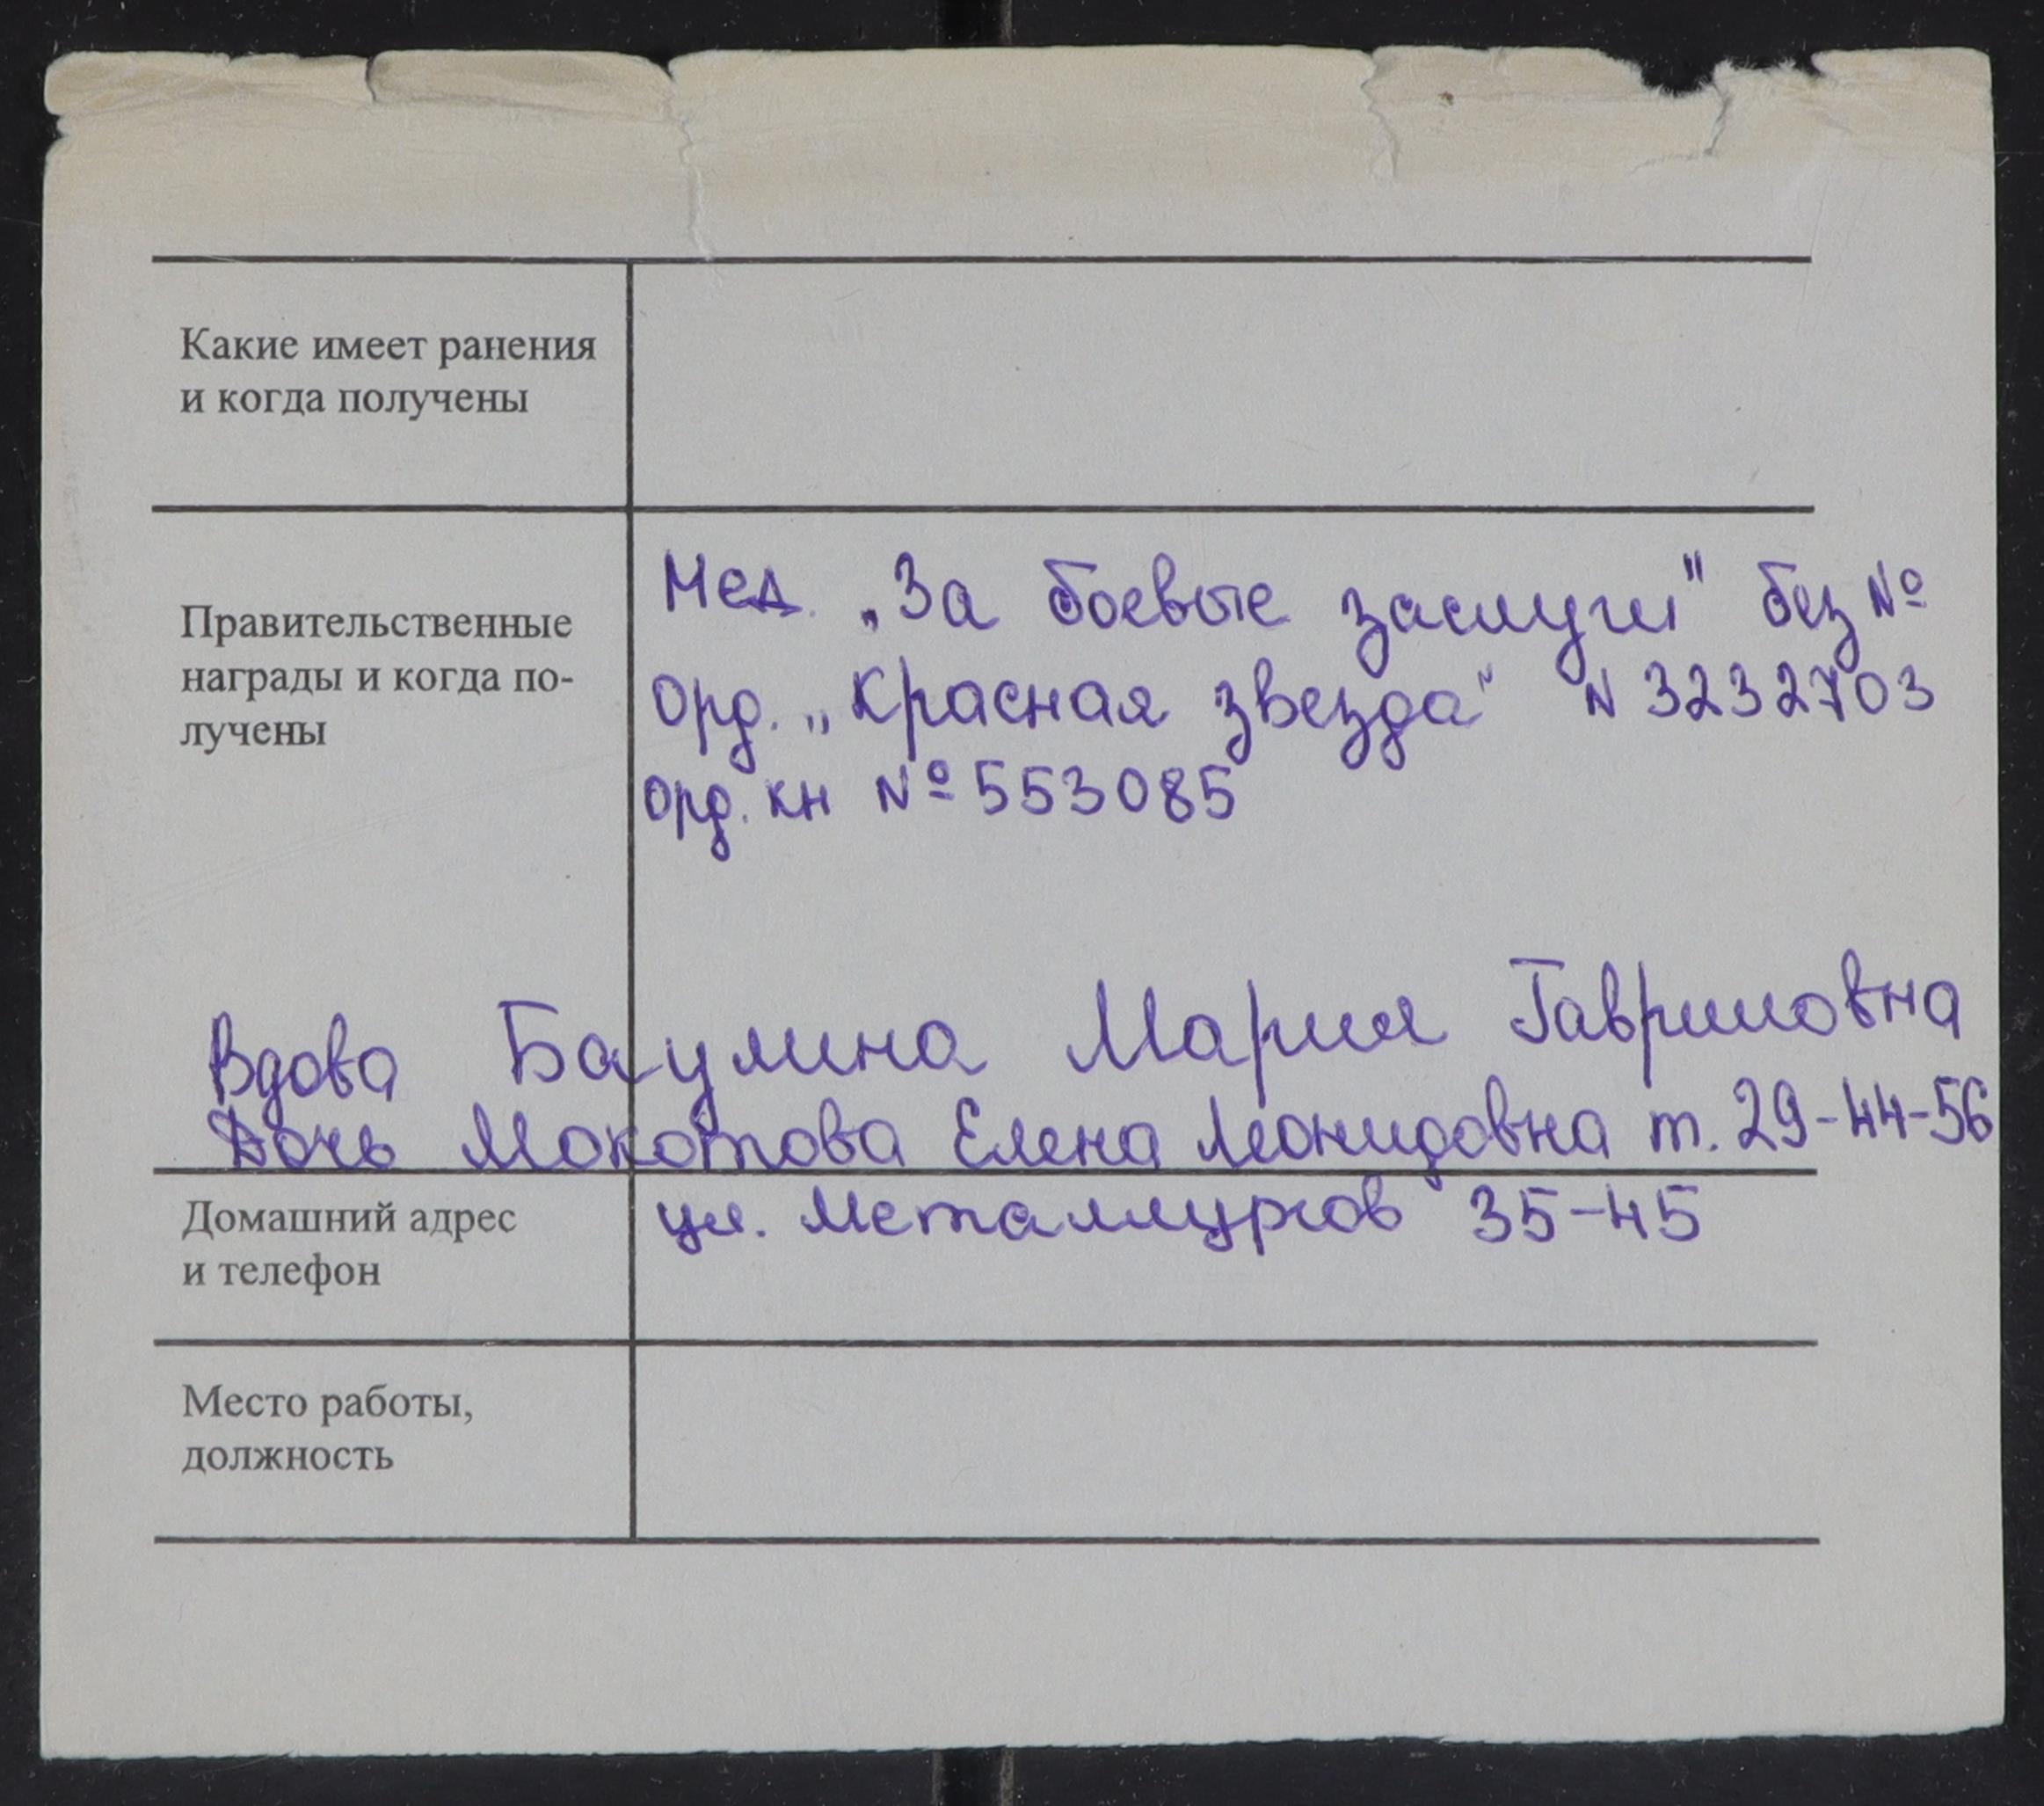 Какие имеет ранения
и когда получены
Правительственные
награды и когда по-
лучены
Мед. „За боевые заслуги" без №
орд. „Красная звезда" N 3232703
орд. кн № 553085
Вдова Баулина Мария Гавриловна
Дочь Мокотова Елена Леонидовна т. 29-44-56
Домашний адрес
и телефон
ул. Металлургов 35-45
Место работы,
должность